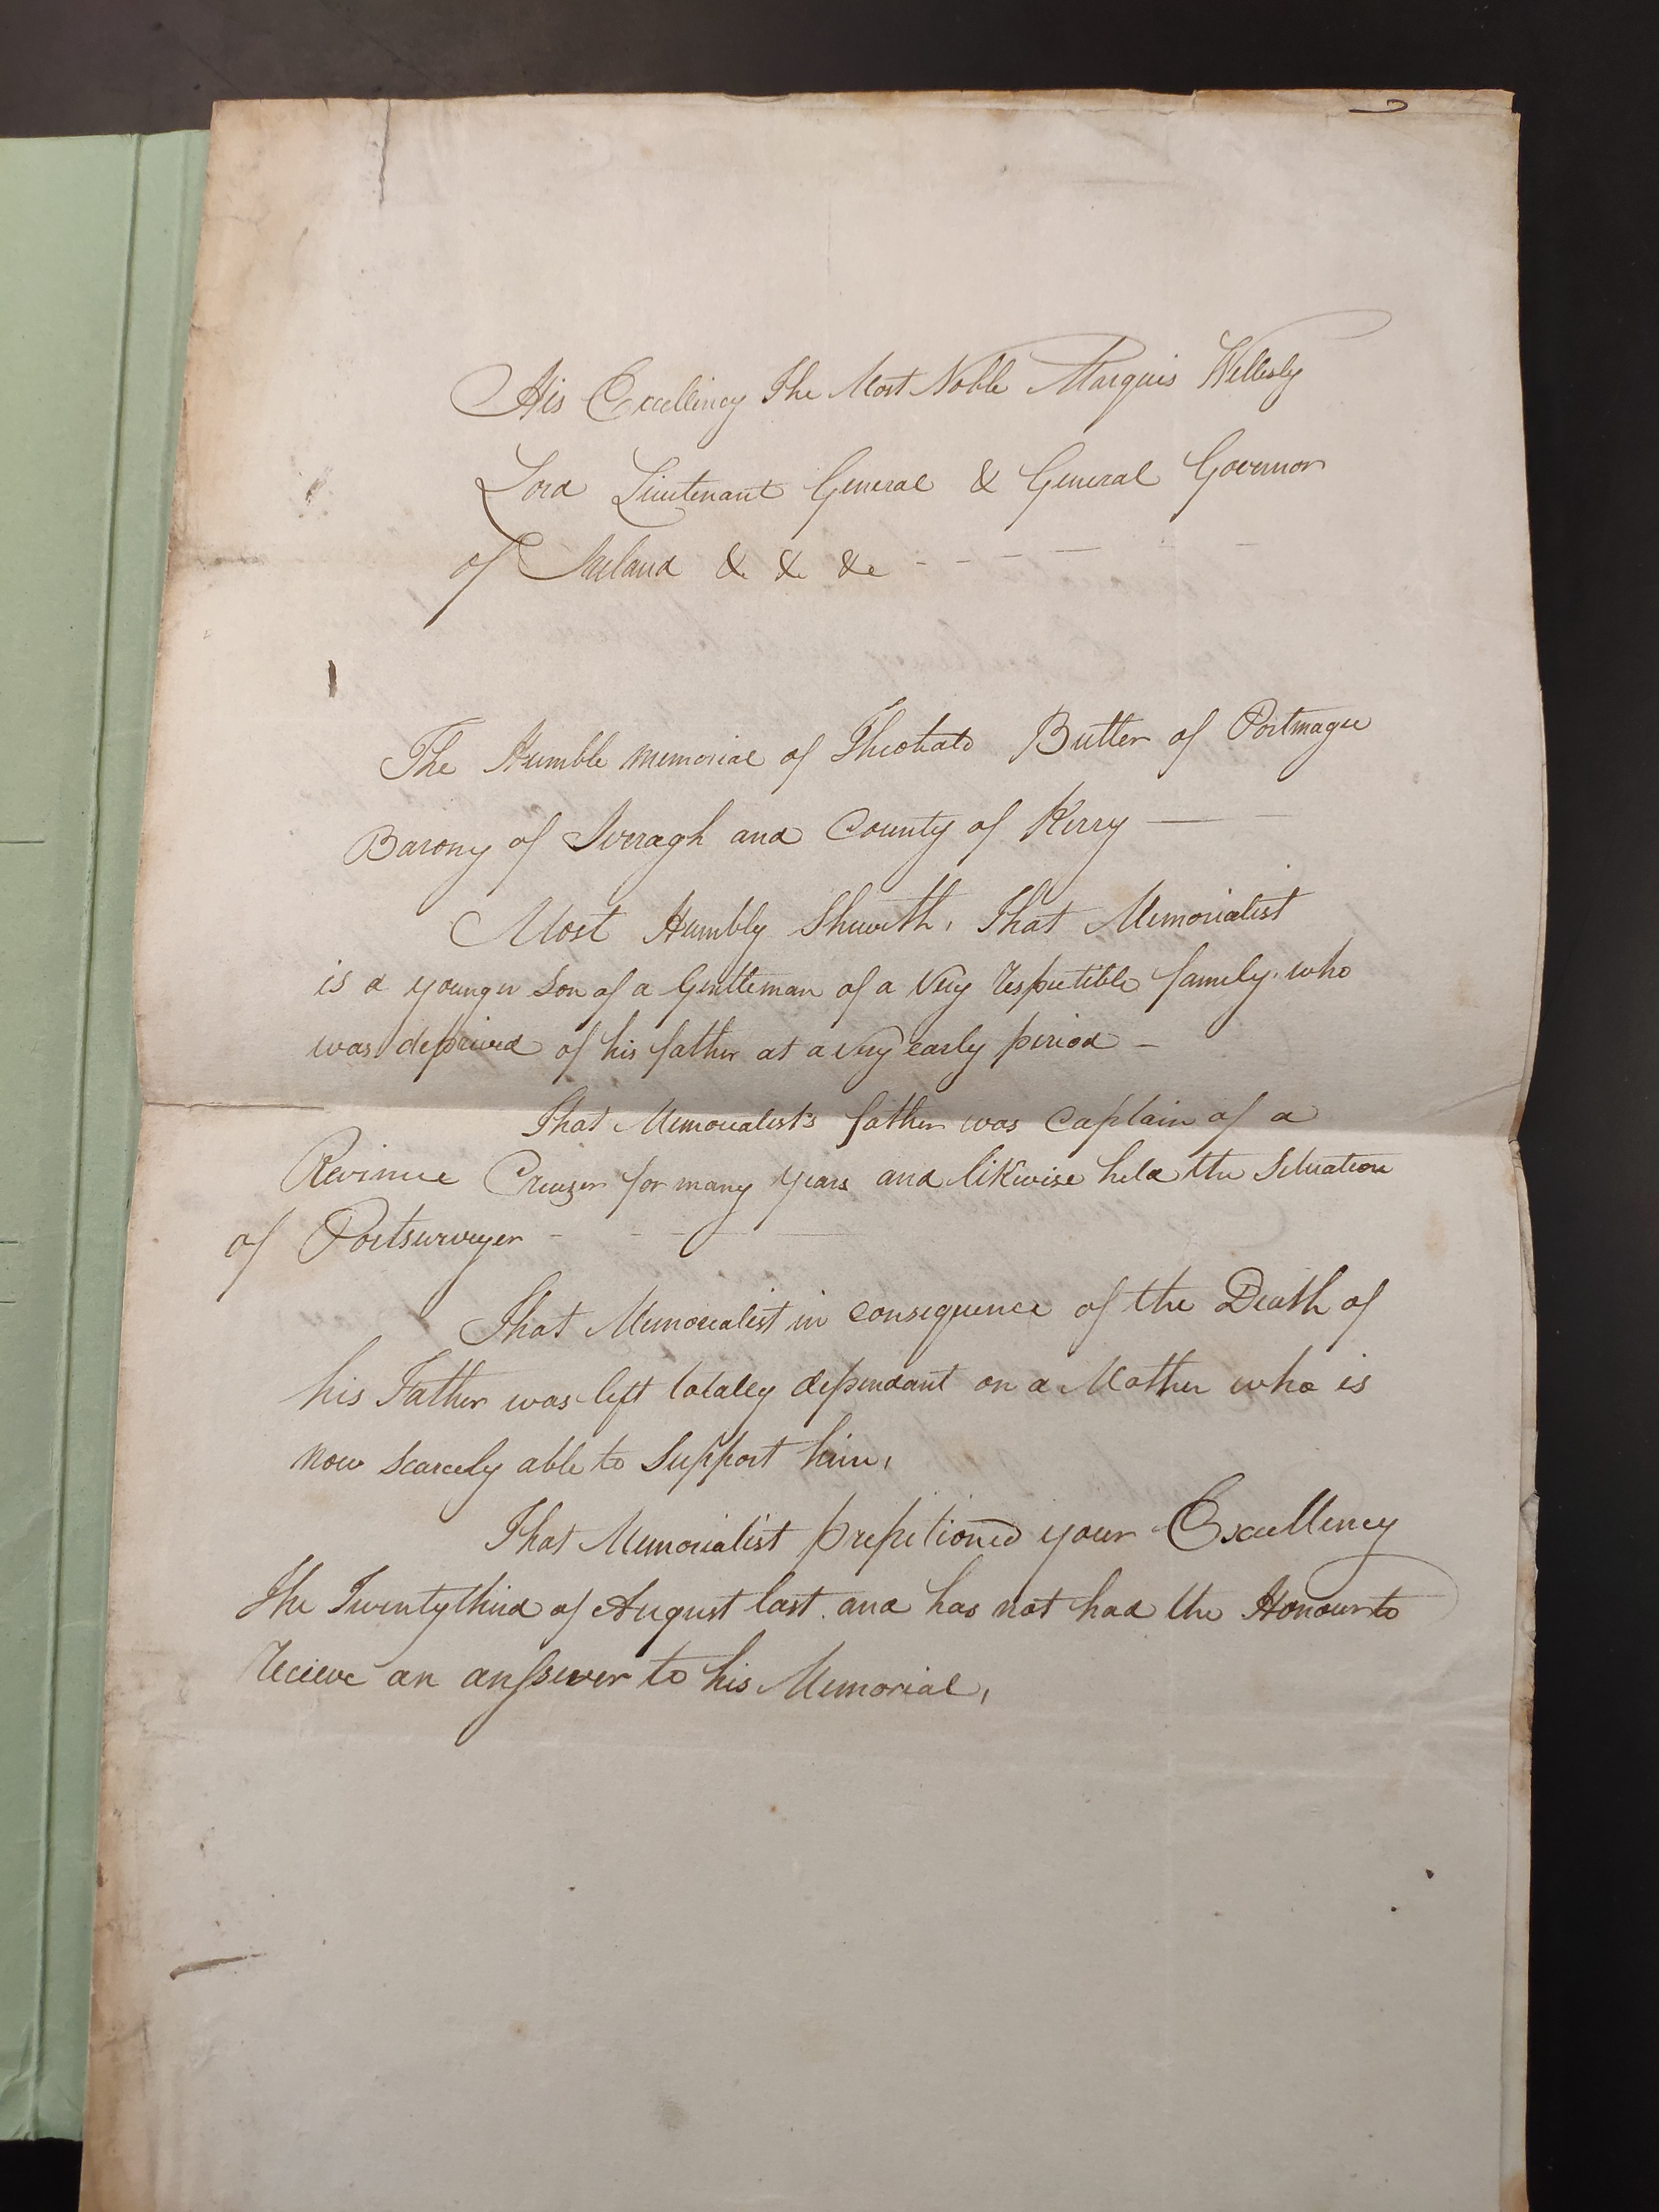 His Excellincy The Most Noble Marquis Wellesly
Lord Lieutenant General & General Governor
of Ireland & & &c - - - - - -
The Humble memorial of Theobald Butler of Portmagee
Barony of Iveragh and County of Kerry — —
Most Humbly Sheweth, That Memorialist
is a younger Son of a Gentleman of a Very respectible family. who
was deprived of his father at a very early period -
That Memorialist's father was Captain of a
Revinue Cruizer for many years and likewise held the Situation
of Portsurveyer - - - —
That Memorialist in consequence of the Death of
his Father was left totally dependant on a Mother who is
now scarcely able to Support him,
That Memorialist prepetioned your Excellency
The Twentythird of August last. and has not had the Honour to
recieve an answer to his Memorial,